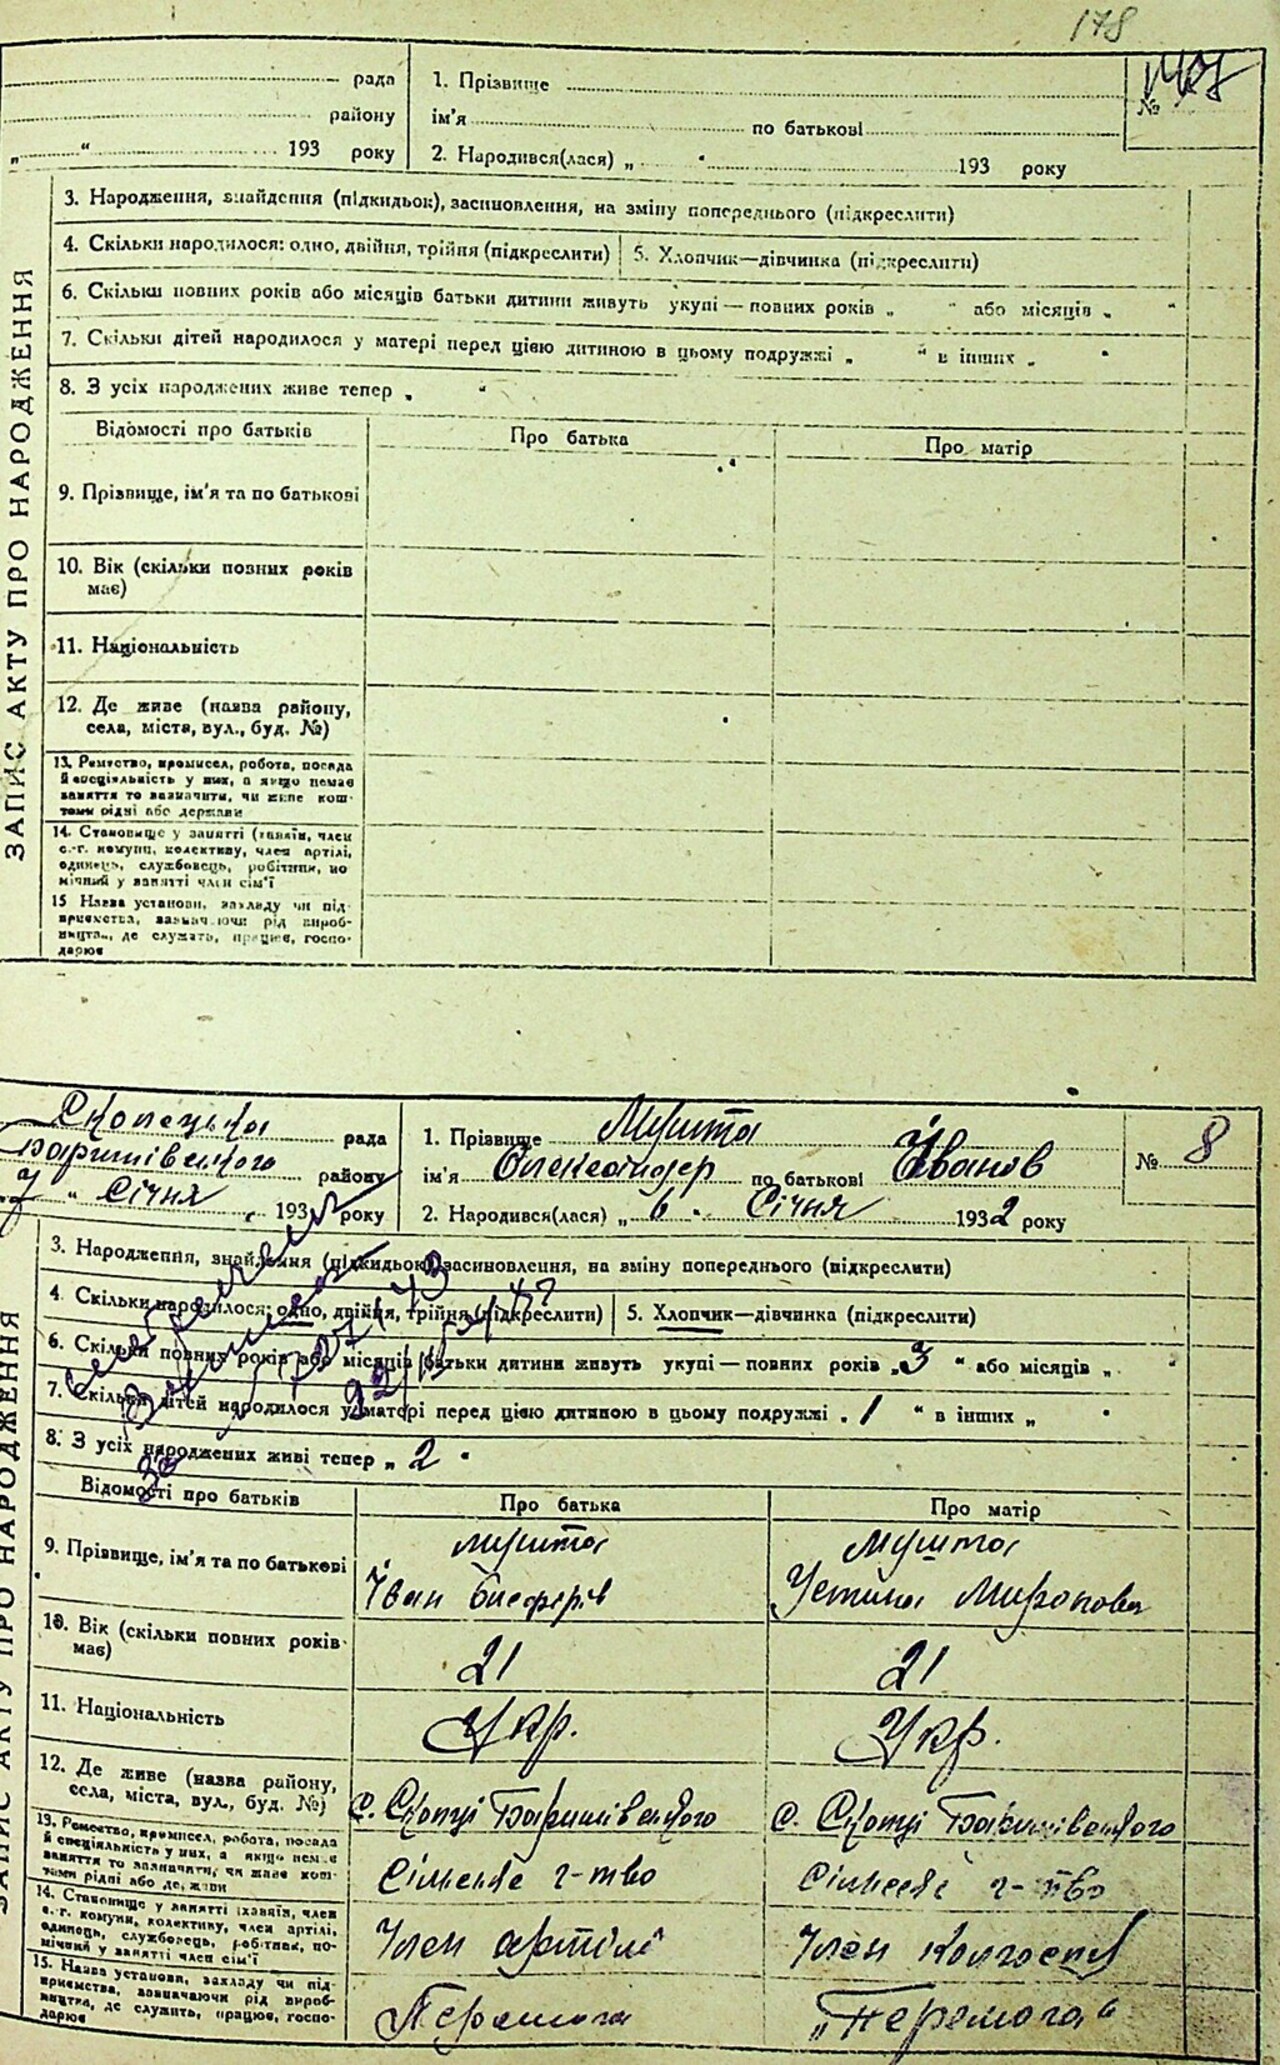 178
рада
району
„ “ 193 року
1. Прізвище
ім'я по батькові
2. Народився(лася) „ “ 193 року
№
ЗАПИС АКТУ ПРО НАРОДЖЕННЯ
3. Народження, знайдення (підкидьок), засиновлення, на зміну попереднього (підкреслити)
4. Скільки народилося: одно, двійня, трійня (підкреслити) 5. Хлопчик—дівчинка (підкреслити)
6. Скільки повних років або місяців батьки дитини живуть укупі — повних років „ “ або місяців „ “
7. Скільки дітей народилося у матері перед цією дитиною в цьому подружжі „ “ в інших „ “
8. З усіх народжених живе тепер „ “
Відомості про батьків Про батька Про матір
9. Прізвище, ім'я та по батькові
10. Вік (скільки повних років
має)
11. Національність
12. Де живе (назва району,
села, міста, вул., буд. №)
13. Ремество, промисел, робота, посада
й спеціяльність у них, а якщо немає
заняття то зазначити, чи живе кош-
тами рідні або держави
14. Становище у занятті (хазяїн, член
с.-г. комуни, колективу, член артілі,
одинець, службовець, робітник, по
мічний у занятті член сім'ї
15 Назва установи, закладу чи під-
приємства, зазначаючи рід вироб-
ництва, де служать, працює, госпо-
дарює
Скопецька рада
Баришівського району
7 “ Січня 193 року
1. Прізвище Мушта
ім'я Олександер по батькові Іванов
2. Народився(лася) „ 6 “ Січня 1932 року
№ 8
ЗАПИС АКТУ ПРО НАРОДЖЕННЯ
3. Народження, знайдення (підкидьок) засиновлення, на зміну попереднього (підкреслити)
4. Скільки народилося: одно, двійня, трійня (підкреслити) 5. Хлопчик—дівчинка (підкреслити)
6. Скільки повних років або місяців батьки дитини живуть укупі — повних років „ 3 “ або місяців „ “
7. Скільки дітей народилося у матері перед цією дитиною в цьому подружжі „ 1 “ в інших „ “
8. З усіх народжених живі тепер „ 2 “
Відомості про батьків Про батька Про матір
9. Прізвище, ім'я та по батькові Мушта Мушта
Іван Устина Миронова
10. Вік (скільки повних років
має) 21 21
11. Національність Укр. Укр.
12. Де живе (назва району,
села, міста, вул., буд. №) с. Скопці Баришівського с. Скопці Баришівського
13. Ремество, промисел, робота, посада
й спеціяльність у них, а якщо немає
заняття то зазначити, чи живе кош-
тами рідні або держави Сільське г-тво Сільське г-тво
14. Становище у занятті (хазяїн, член
с.-г. комуни, колективу, член артілі,
одинець, службовець, робітник, по-
мічний у занятті член сім'ї Член артілі Член колгоспу
15. Назва установи, закладу чи під-
приємства, зазначаючи рід вироб-
ництва, де служить, працює, госпо-
дарює Перемога „Перемога“